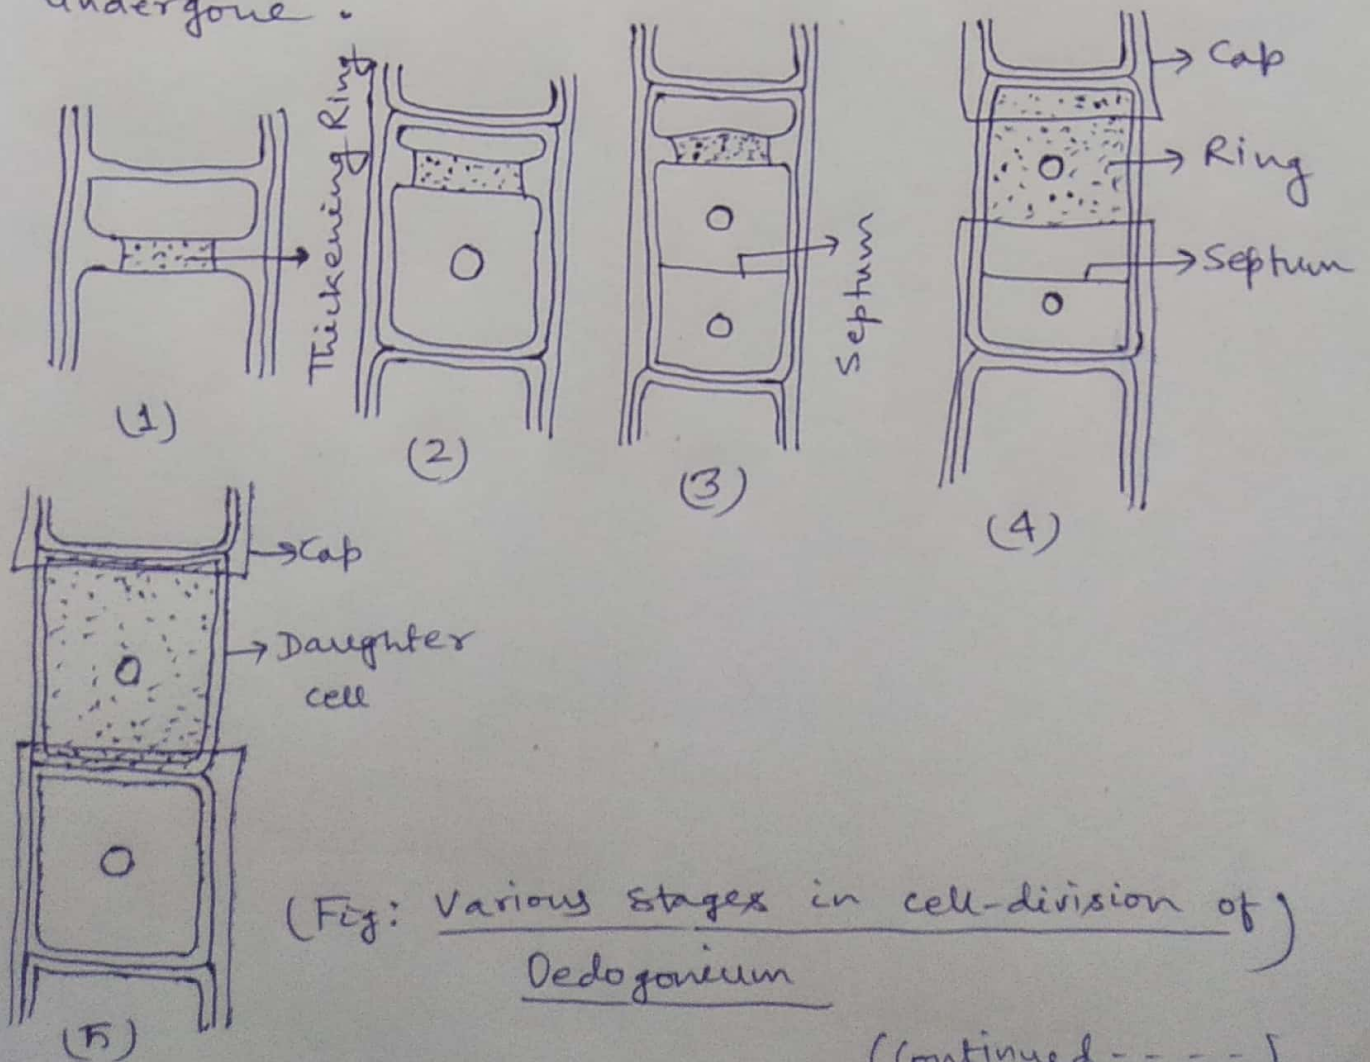 undergone.
Thickening Ring
(1)
(2)
Septum
(3)
Cap
Ring
Septum
(4)
Cap
Daughter
cell
(5)
(Fig: Various stages in cell-division of)
Oedogonium
(Continued-----]